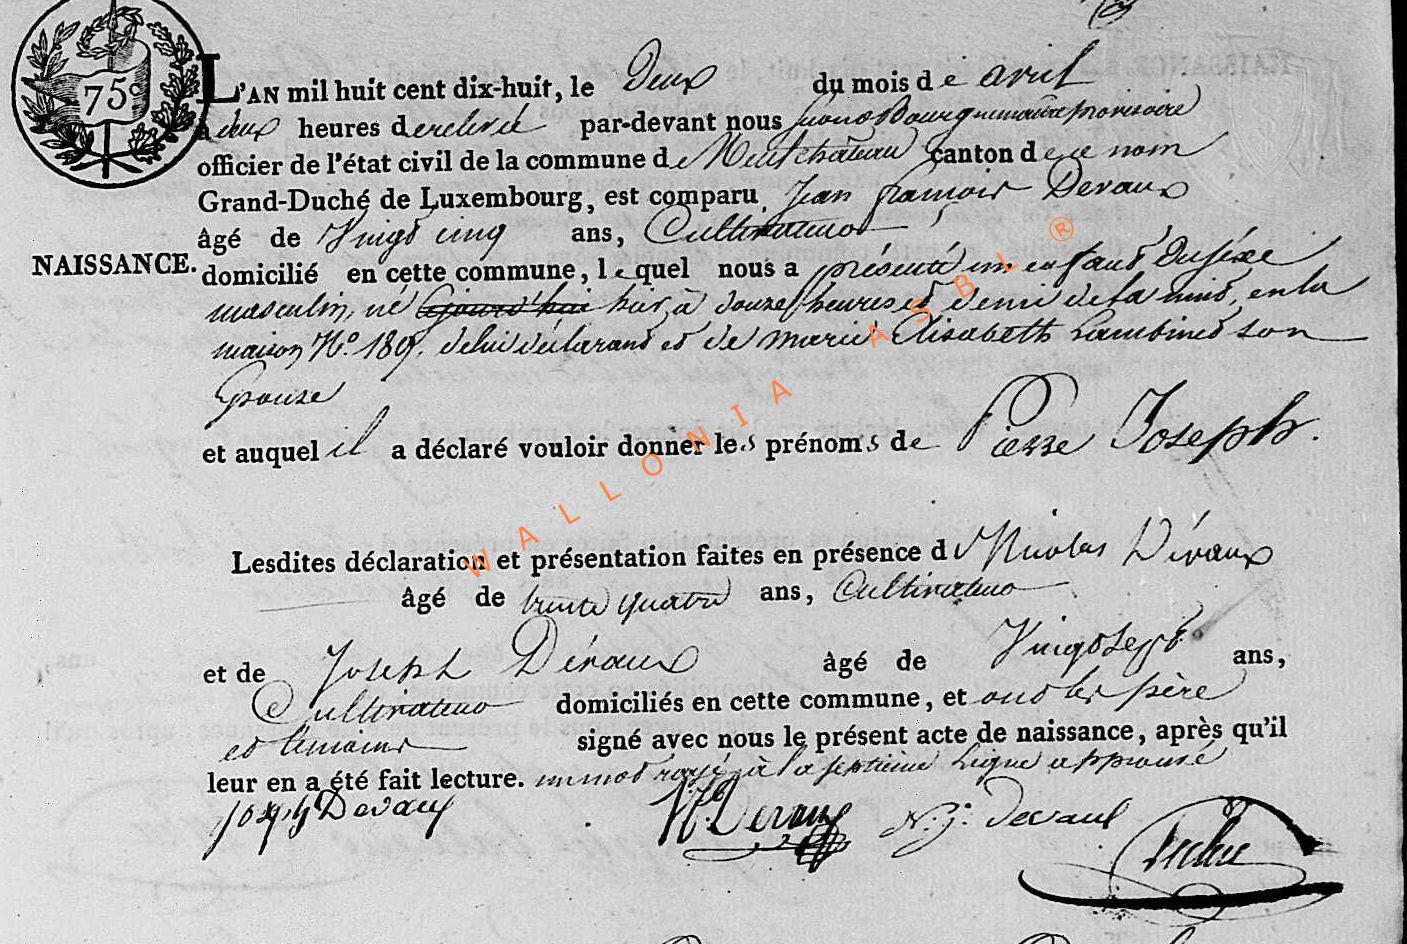 75c
L'AN mil huit cent dix-huit, le Deux du mois de avril
à deux heures de relevée par-devant nous Bourguemaitre provisoire
officier de l'état civil de la commune de Neufchateau canton de ce nom
Grand-Duché de Luxembourg, est comparu Jean françois Devaux
âgé de Vingt cinq ans, Cultivateur
NAISSANCE.
domicilié en cette commune, lequel nous a présenté un enfant du séxe
masculin, né aujourd'hui hier, à douze heures et demi de la nuit, en la
maison N.o 189. de lui déclarant et de marie Elisabeth Lambinet son
Epouse
et auquel il a déclaré vouloir donner les prénoms de Pierre Joseph.
Lesdites déclaration et présentation faites en présence de Nicolas Dévaux
âgé de trente quatre ans, Cultivateur
et de Joseph Dévaux âgé de Vingt sept ans,
Cultivateur domiciliés en cette commune, et ont les père
et temoins signé avec nous le présent acte de naissance, après qu'il
leur en a été fait lecture. un mot rayé à la septieme Ligne approuvé
Joseph Devaux Devaux N. J: devaux
WALLONIA ASBL ®